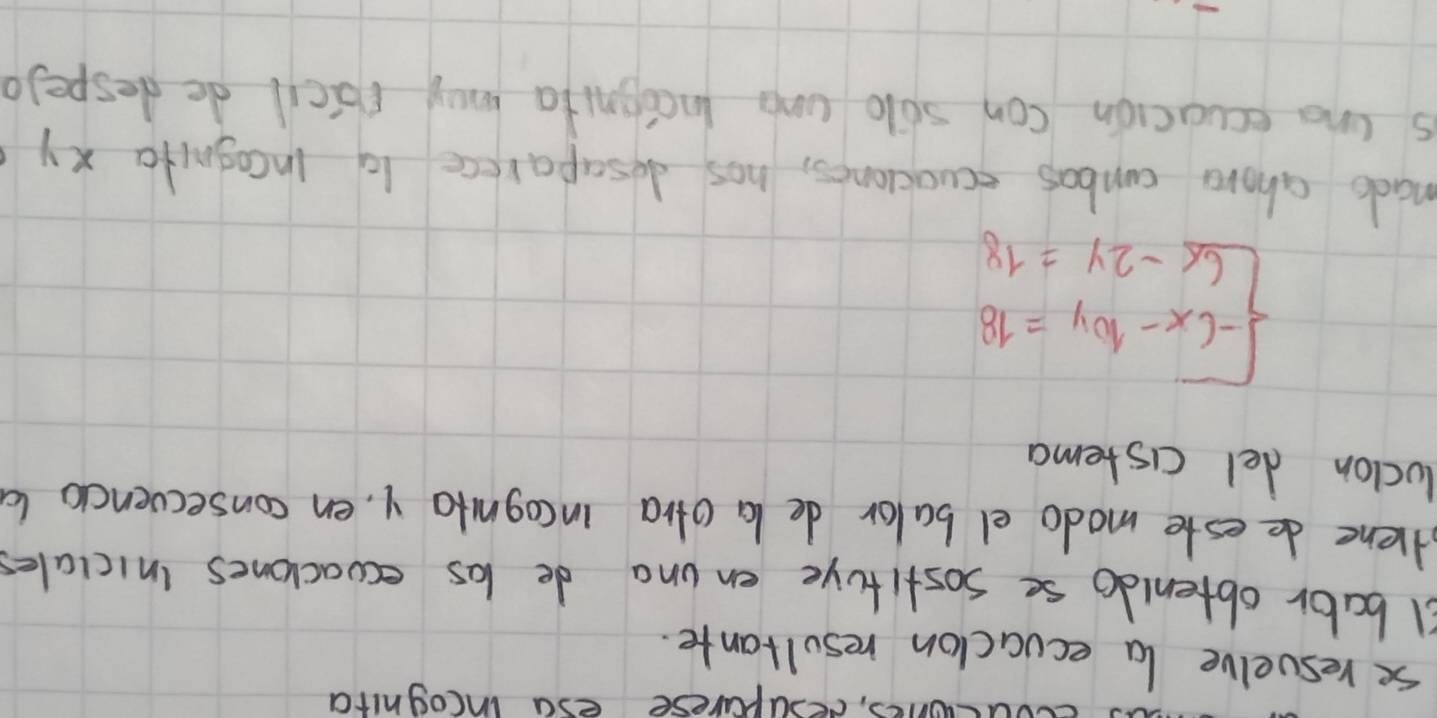 ecuaciones, desaparese esa incognita
se resuelve la ecuacion resultante.
El balor obtenido se sostituye en una de las ecuaciones iniciales
tiene de este modo el balor de la otra incognita y, en consecuencia la
lucion del cistema
-6x - 10y = 18
6x - 2y = 18
mado ahora ambas ecuaciones, nos desaparece la incognita x y
s una ecuación con sólo una incógnita muy fácil de despejo